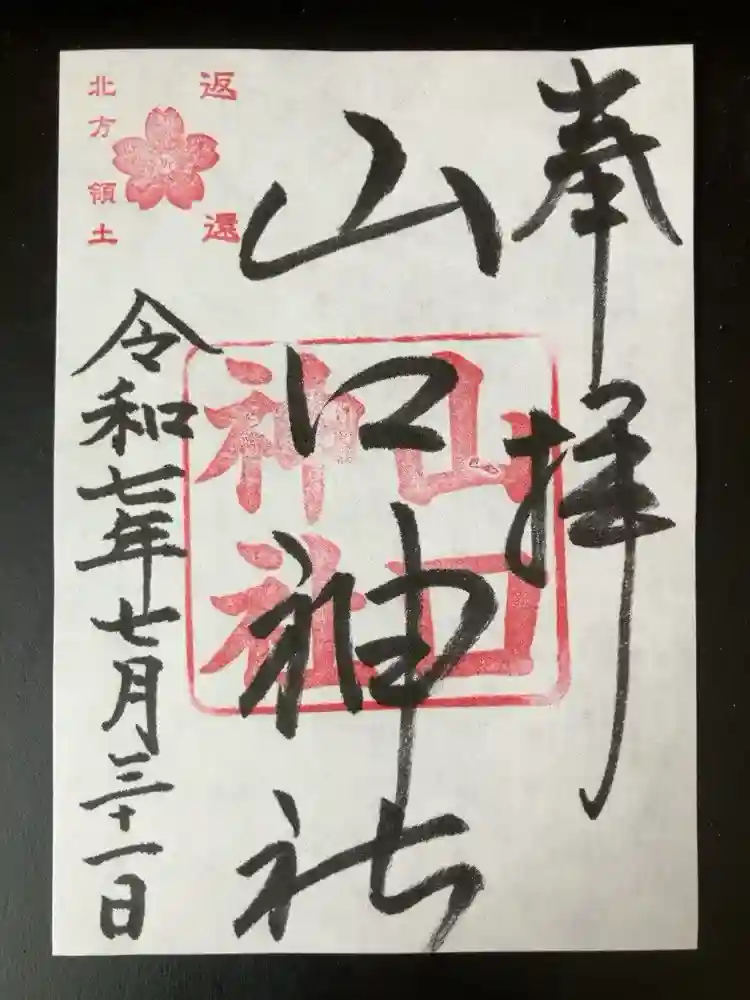 奉拝
山口神社
山口神社
返還
北方領土
令和七年七月三十一日